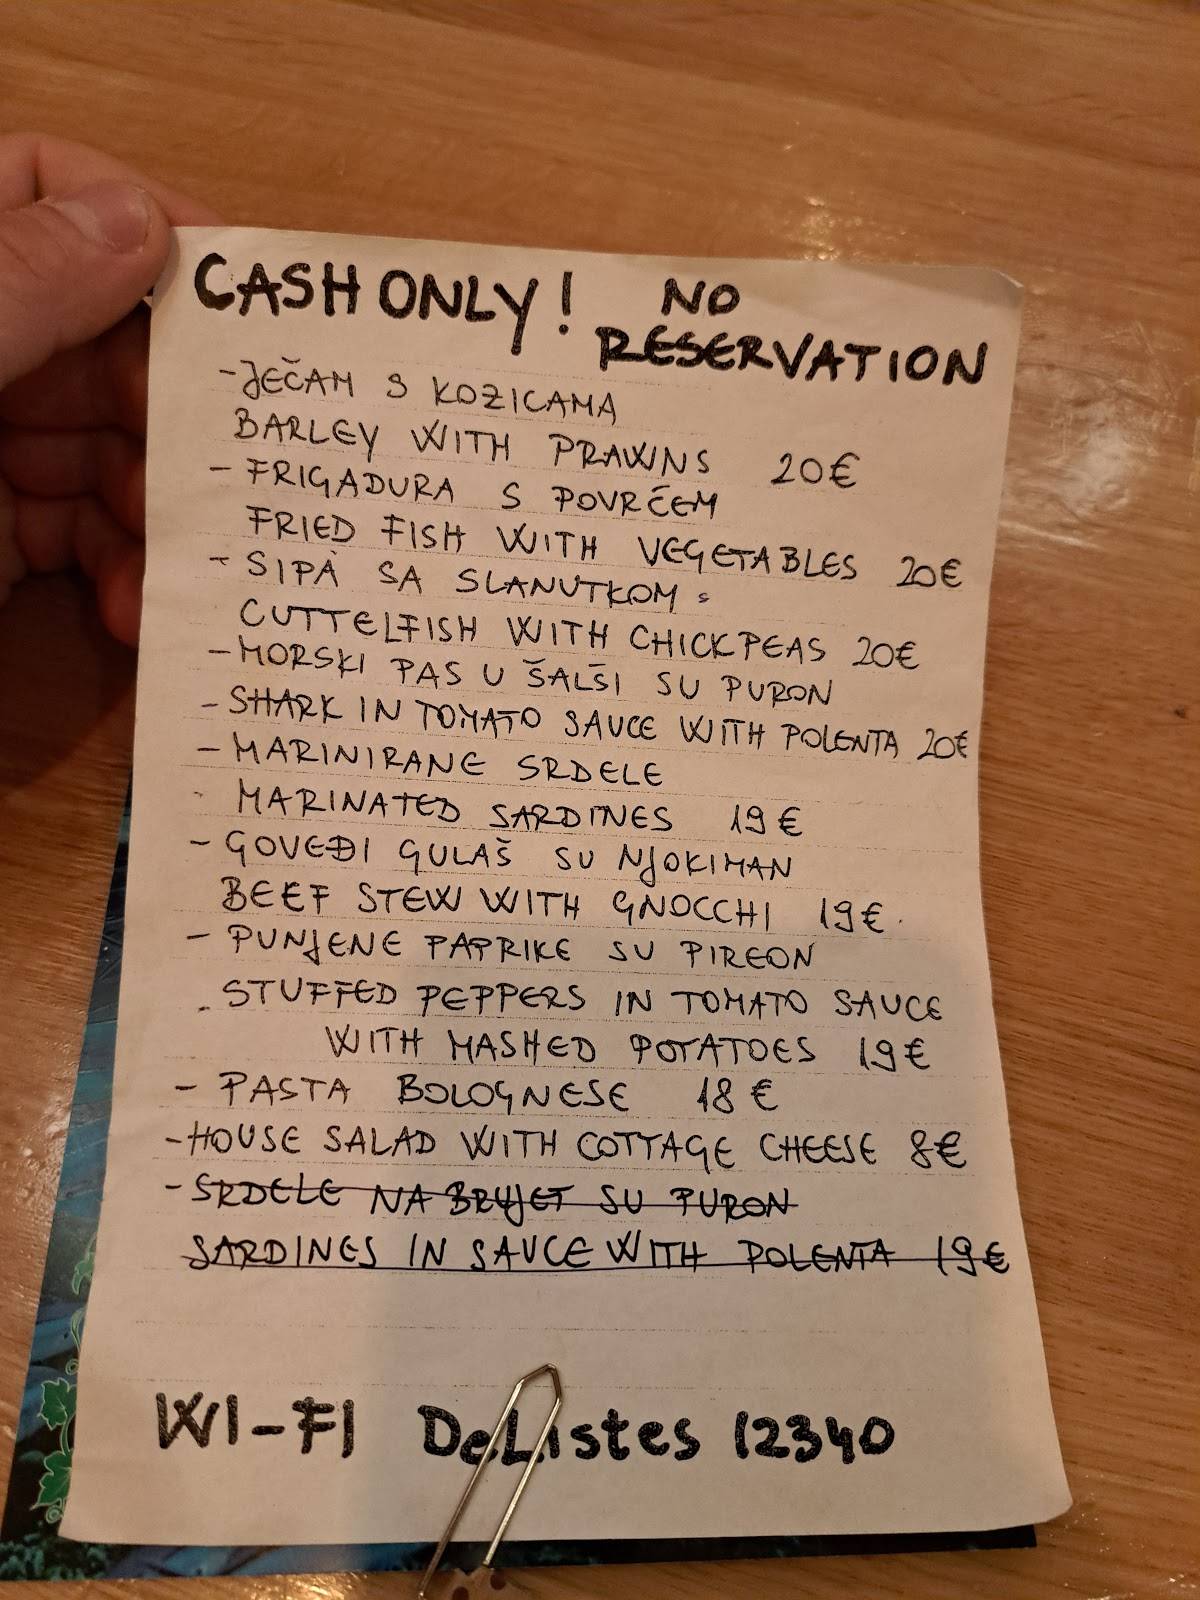 CASH ONLY! NO
RESERVATION
- JEČAM S KOZICAMA
BARLEY WITH PRAWNS 20€
- FRIGADURA S POVRČEM
FRIED FISH WITH VEGETABLES 20€
- SIPA SA SLANUTKOM
CUTTELFISH WITH CHICKPEAS 20€
- MORSKI PAS U ŠALŠI SU PURON
- SHARK IN TOMATO SAUCE WITH POLENTA 20€
- MARINIRANE SRDELE
MARINATED SARDINES 19€
- GOVEĐI GULAŠ SU NJOKIMAN
BEEF STEW WITH GNOCCHI 19€
- PUNJENE PAPRIKE SU PIREON
STUFFED PEPPERS IN TOMATO SAUCE
WITH MASHED POTATOES 19€
- PASTA BOLOGNESE 18€
- HOUSE SALAD WITH COTTAGE CHEESE 8€
- SRDELE NA BRUJET SU PURON
SARDINES IN SAUCE WITH POLENTA 19€
WI-FI DeListes 12340